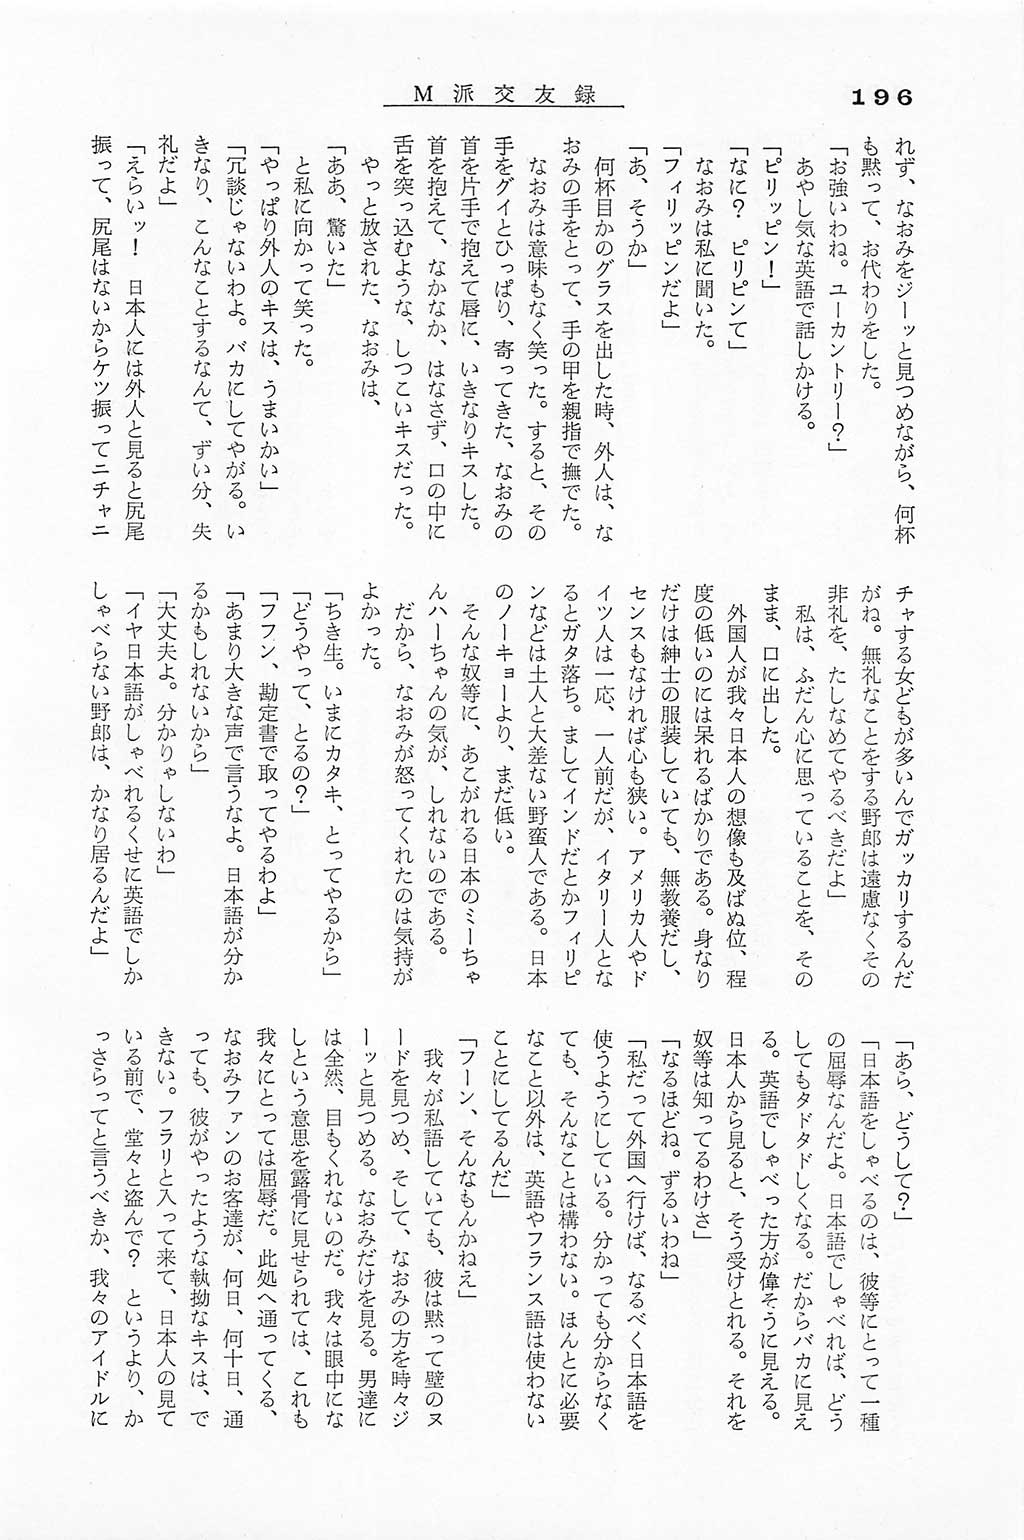 M派交友録
196
れず、なおみをジーッと見つめながら、何杯
も黙って、お代わりをした。
「お強いわね。ユーカントリー？」
あやし気な英語で話しかける。
「ピリッピン！」
「なに？　ピリピンて」
なおみは私に聞いた。
「フィリッピンだよ」
「あ、そうか」
何杯目かのグラスを出した時、外人は、な
おみの手をとって、手の甲を親指で撫でた。
なおみは意味もなく笑った。すると、その
手をグイとひっぱり、寄ってきた、なおみの
首を片手で抱えて唇に、いきなりキスした。
首を抱えて、なかなか、はなさず、口の中に
舌を突っ込むような、しつこいキスだった。
やっと放された、なおみは、
「ああ、驚いた」
と私に向かって笑った。
「やっぱり外人のキスは、うまいかい」
「冗談じゃないわよ。バカにしてやがる。い
きなり、こんなことするなんて、ずい分、失
礼だよ」
「えらいッ！　日本人には外人と見ると尻尾
振って、尻尾はないからケツ振ってニチャニ
チャする女どもが多いんでガッカリするんだ
がね。無礼なことをする野郎は遠慮なくその
非礼を、たしなめてやるべきだよ」
私は、ふだん心に思っていることを、その
まま、口に出した。
外国人が我々日本人の想像も及ばぬ位、程
度の低いのには呆れるばかりである。身なり
だけは紳士の服装していても、無教養だし、
センスもなければ心も狭い。アメリカ人やド
イツ人は一応、一人前だが、イタリー人とな
るとガタ落ち。ましてインドだとかフィリピ
ンなどは土人と大差ない野蛮人である。日本
のノーキョーより、まだ低い。
そんな奴等に、あこがれる日本のミーちゃ
んハーちゃんの気が、しれないのである。
だから、なおみが怒ってくれたのは気持が
よかった。
「ちき生。いまにカタキ、とってやるから」
「どうやって、とるの？」
「フフン、勘定書で取ってやるわよ」
「あまり大きな声で言うなよ。日本語が分か
るかもしれないから」
「大丈夫よ。分かりゃしないわ」
「イヤ日本語がしゃべれるくせに英語でしか
しゃべらない野郎は、かなり居るんだよ」
「あら、どうして？」
「日本語をしゃべるのは、彼等にとって一種
の屈辱なんだよ。日本語でしゃべれば、どう
してもタドタドしくなる。だからバカに見え
る。英語でしゃべった方が偉そうに見える。
日本人から見ると、そう受けとれる。それを
奴等は知ってるわけさ」
「なるほどね。ずるいわね」
「私だって外国へ行けば、なるべく日本語を
使うようにしている。分かっても分からなく
ても、そんなことは構わない。ほんとに必要
なこと以外は、英語やフランス語は使わない
ことにしてるんだ」
「フーン、そんなもんかねえ」
我々が私語していても、彼は黙って壁のヌ
ードを見つめ、そして、なおみの方を時々ジ
ーッと見つめる。なおみだけを見る。男達に
は全然、目もくれないのだ。我々は眼中にな
しという意思を露骨に見せられては、これも
我々にとっては屈辱だ。此処へ通ってくる、
なおみファンのお客達が、何日、何十日、通
っても、彼がやったような執拗なキスは、で
きない。フラリと入って来て、日本人の見て
いる前で、堂々と盗んで？　というより、か
っさらってと言うべきか、我々のアイドルに